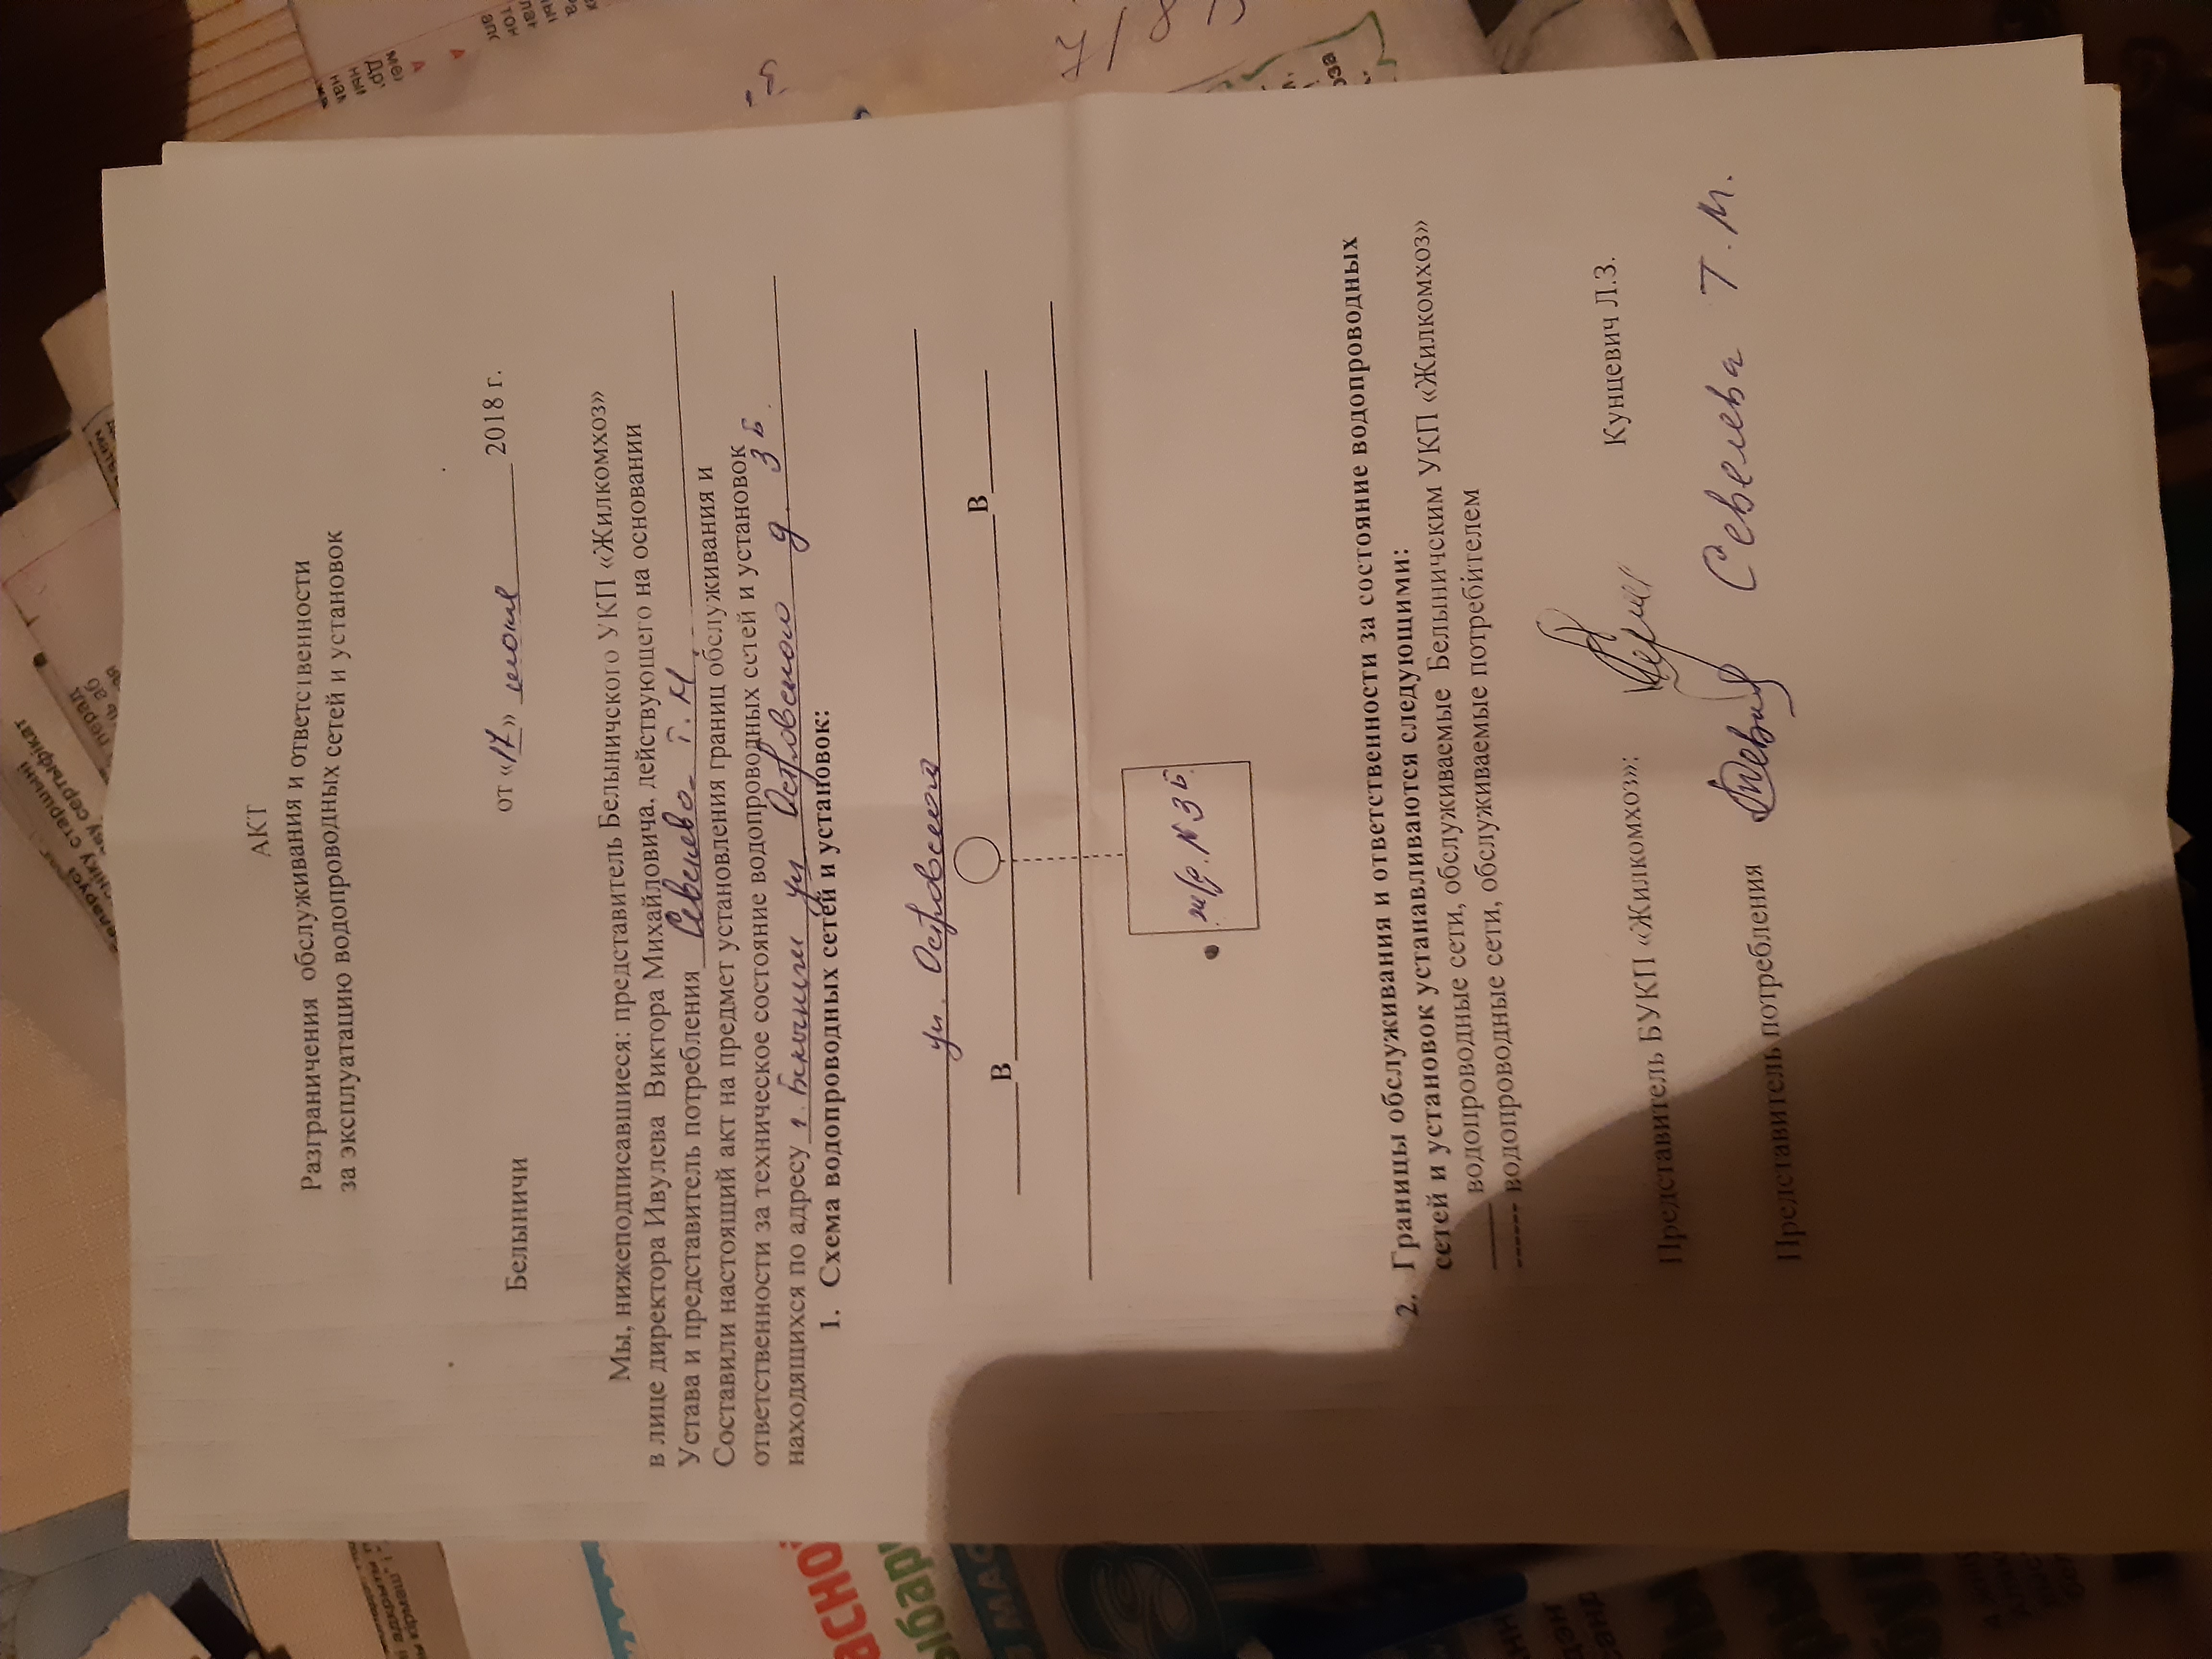 АКТ
Разграничения обслуживания и ответственности
за эксплуатацию водопроводных сетей и установок
Белыничи от «17» июля 2018 г.
Мы, нижеподписавшиеся: представитель Белыничского УКП «Жилкомхоз»
в лице директора Ивулева Виктора Михайловича, действующего на основании
Устава и представитель потребления Севелева Т.М.
Составили настоящий акт на предмет установления границ обслуживания и
ответственности за техническое состояние водопроводных сетей и установок
находящихся по адресу г. Белыничи ул Островского д. 3Б.
1. Схема водопроводных сетей и установок:
ул. Островского
В В
ж/д. N3Б
2. Границы обслуживания и ответственности за состояние водопроводных
сетей и установок устанавливаются следующими:
____ водопроводные сети, обслуживаемые Белыничским УКП «Жилкомхоз»
------ водопроводные сети, обслуживаемые потребителем
Представитель БУКП «Жилкомхоз»: Кунцевич Л.З.
Представитель потребления Севелева Т.М.